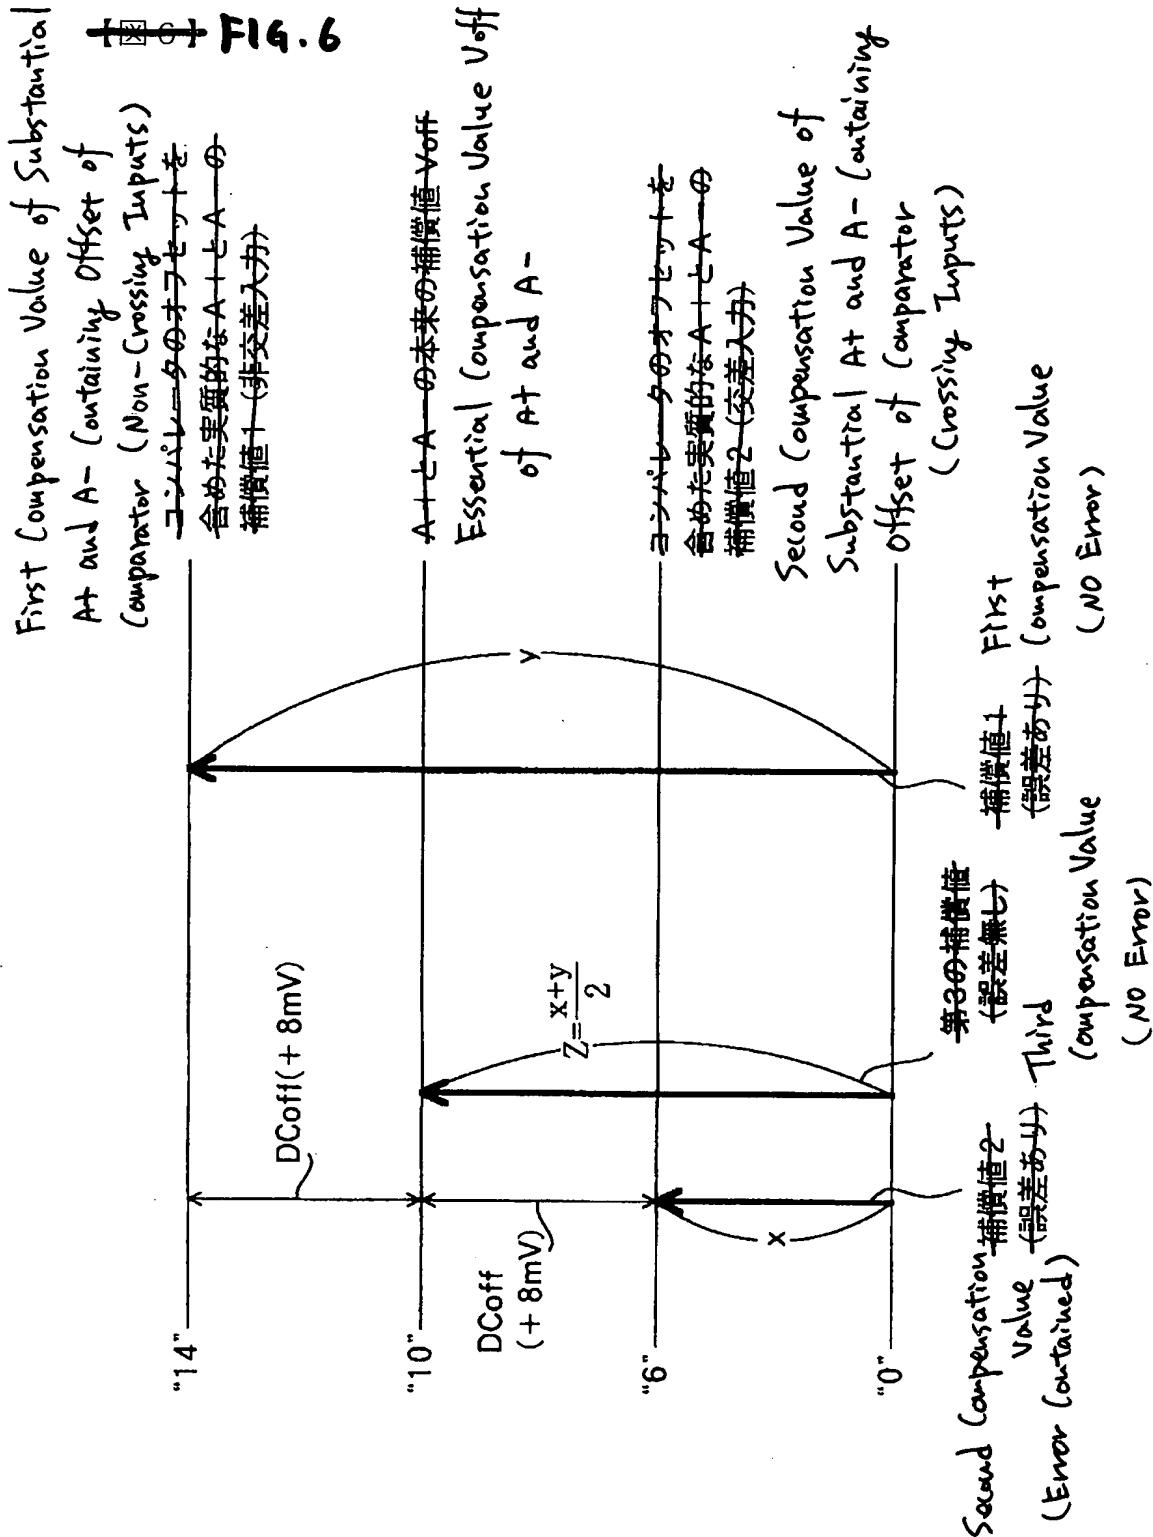 【図6】 FIG. 6
First Compensation Value of Substantial
A+ and A- Containing Offset of
Comparator (Non-Crossing Inputs)
コンパレータのオフセットを
含めた実質的なA+とA-の
補償値1(非交差入力)
A+とA-の本来の補償値Voff
Essential Compensation Value Voff
of A+ and A-
コンパレータのオフセットを
含めた実質的なA+とA-の
補償値2(交差入力)
Second Compensation Value of
Substantial A+ and A- Containing
Offset of Comparator
(Crossing Inputs)
"14"
"10"
"6"
"0"
DCoff(+8mV)
DCoff
(+8mV)
x
Z=x+y/2
y
補償値2
(誤差あり)
Second Compensation
Value
(Error Contained)
第3の補償値
(誤差無し)
Third
Compensation Value
(NO Error)
補償値1
(誤差あり)
First
Compensation Value
(NO Error)